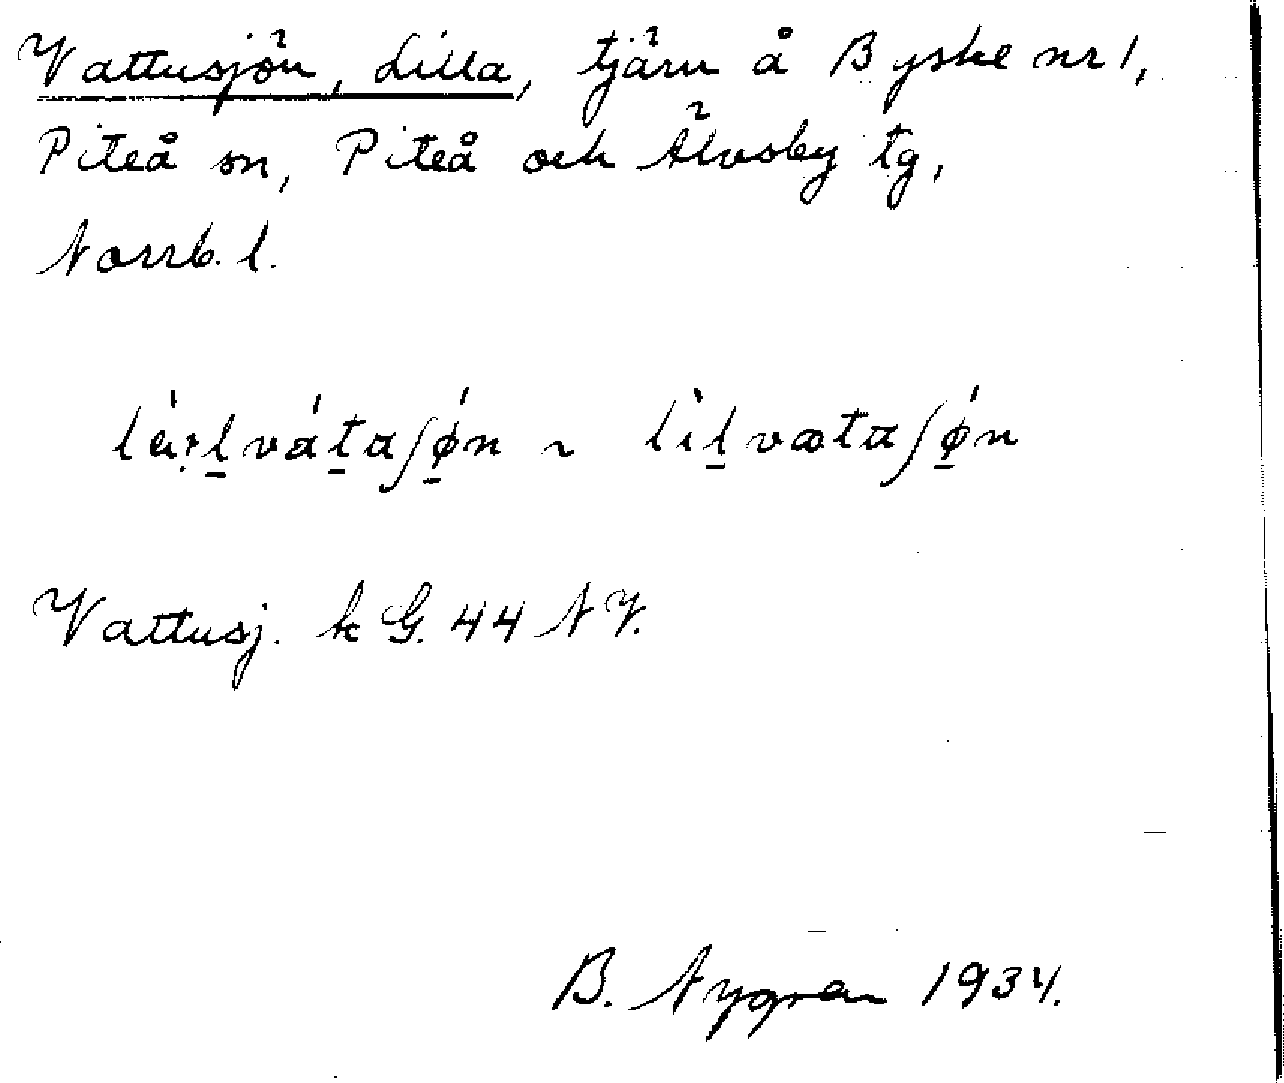 Vattusjön, Lilla, tjärn å Byske nr 1,
Piteå sn, Piteå och Älvsby tg,
Norrb. l.
Vattusj. k G. 44 NV.
B. Nygren 1934.